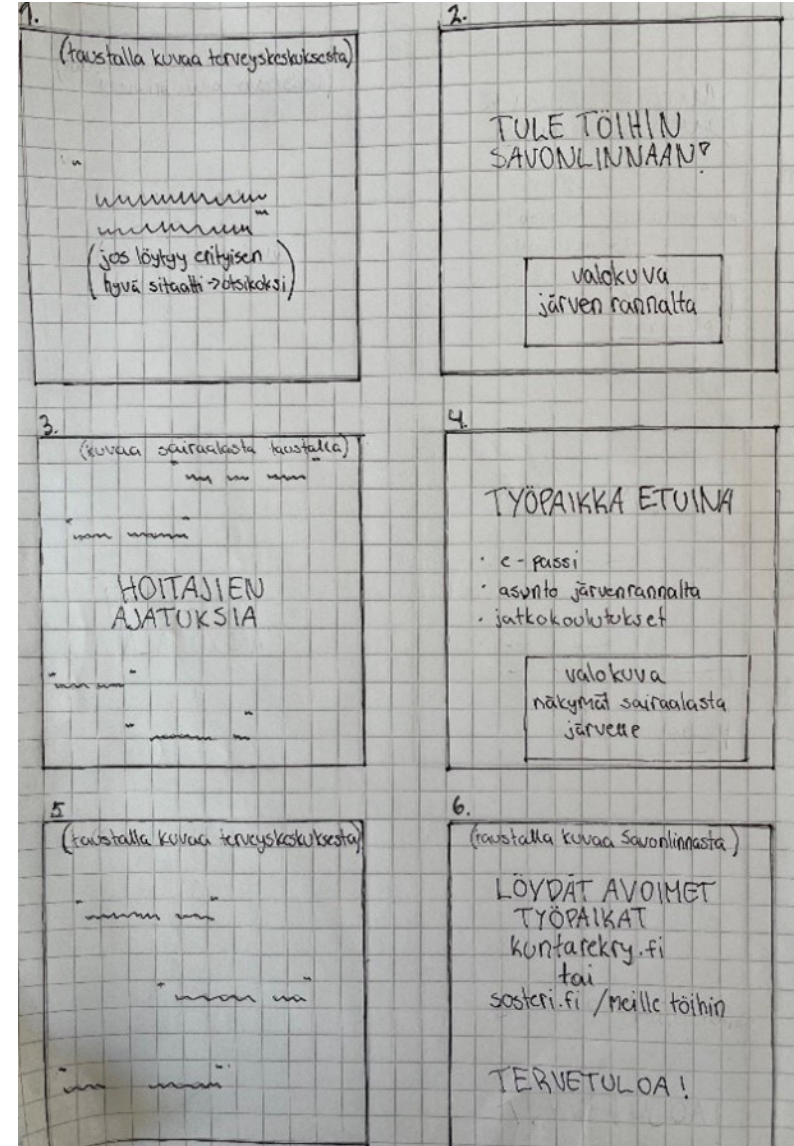 1.
(taustalla kuvaa terveyskeskuksesta)
(jos löytyy erityisen
hyvä sitaatti → otsikoksi)
2.
TULE TÖIHIN
SAVONLINNAAN?
valokuva
järven rannalta
3.
(kuvaa sairaalasta taustalla)
HOITAJIEN
AJATUKSIA
4.
TYÖPAIKKA ETUINA
· e-passi
· asunto järvenrannalta
· jatkokoulutukset
valokuva
näkymät sairaalasta
järvelle
5
(taustalla kuvaa terveyskeskuksesta)
6.
(taustalla kuvaa Savonlinnasta)
LÖYDÄT AVOIMET
TYÖPAIKAT
kuntarekry.fi
tai
sosteri.fi /meille töihin
TERVETULOA!